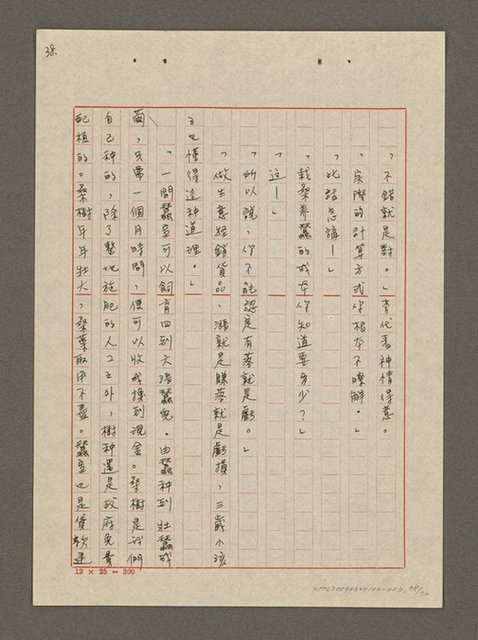 38.
「不錯就是對。」李代表神情得意。
「實際的計算方式你根本不瞭解。」
「此話怎講—」
「栽桑养蠶的成本你知道要多少？」
「這—」
「所以說，你不能認定有落就是虧。」
「做生意經銷貨品，漲就是賺落就是虧損，三歲小孩
子也懂得這种道理。」
「一間蠶室可以飼育四到六張蠶兒。由蠶种到壯蠶成
繭，只需一個月時間，便可以收成換到現金。桑樹是我們
自己种的，除了整地施肥的人工之外，樹种還是政府免費
配植的。桑樹年年壯大，桑葉取用不盡。蠶室也是貸款建
12 × 25 = 300